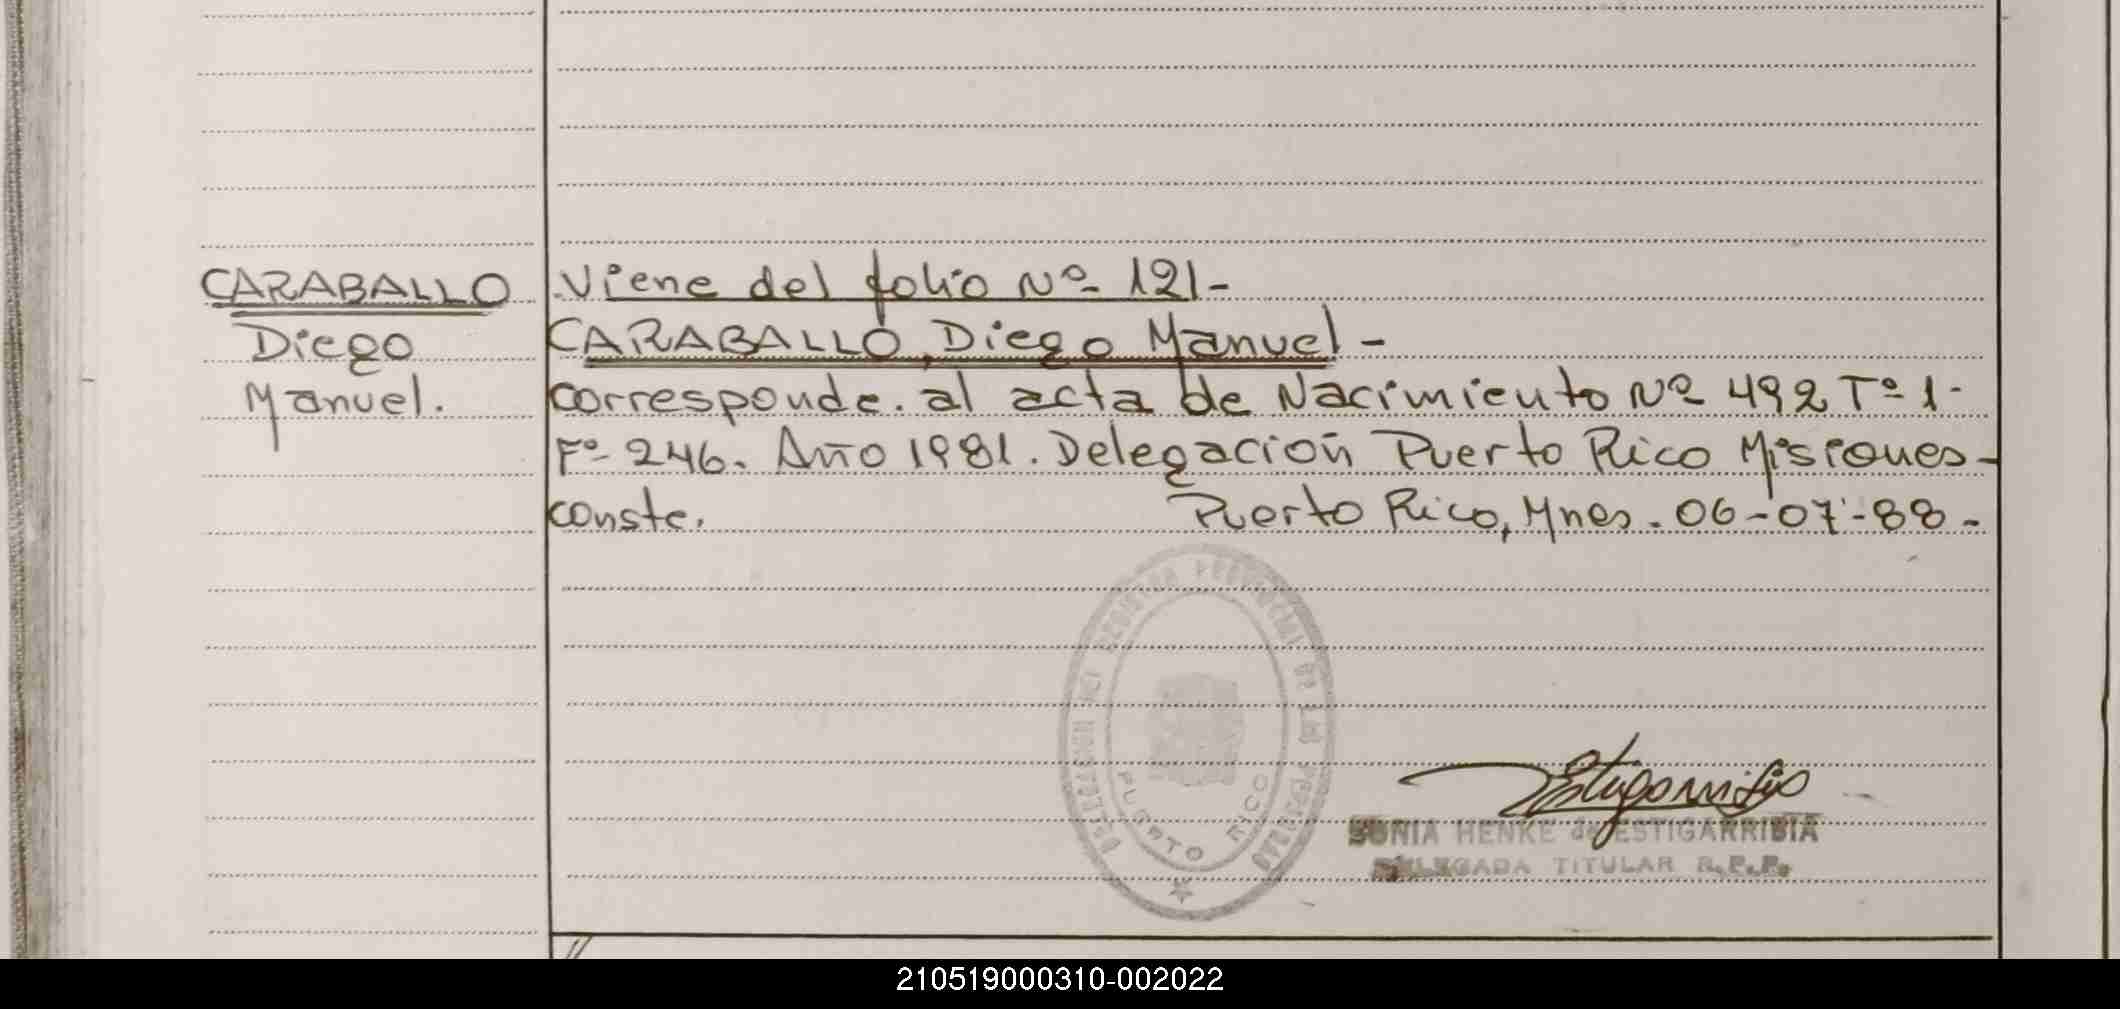 CARABALLO
Diego
Manuel.
Viene del folio Nº 121-
CARABALLO, Diego Manuel-
corresponde. al acta de Nacimiento Nº 492 Tº 1-
Fº 246. Año 1981. Delegación Puerto Rico Misiones-
conste. Puerto Rico, Mnes. 06-07-88-
DELEGACION DEL REGISTRO PROVINCIAL DE LAS PERSONAS
PUERTO RICO
Estigarribia
SONIA HENKE de ESTIGARRIBIA
DELEGADA TITULAR R.P.P.
210519000310-002022